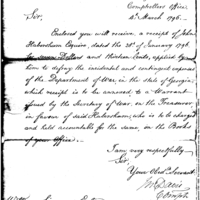 Comptrollers Office
4th March 1796.
Sir,
Enclosed you will receive a receipt of John
Habersham Esquire, dated the 28th of January 1796
for seven Dollars and thirteen Cents, applied by
him to defray the incidental and contingent expences
of the Department of War, in the state of Georgia;
which receipt is to be annexed to a Warrant
issued by the Secretary of War, on the Treasurer,
in favour of said Habersham, who is to be charged
and held accountable for the same, on the Books
of your Office.
I am, very respectfully
Sir,
Your Obed. Servant